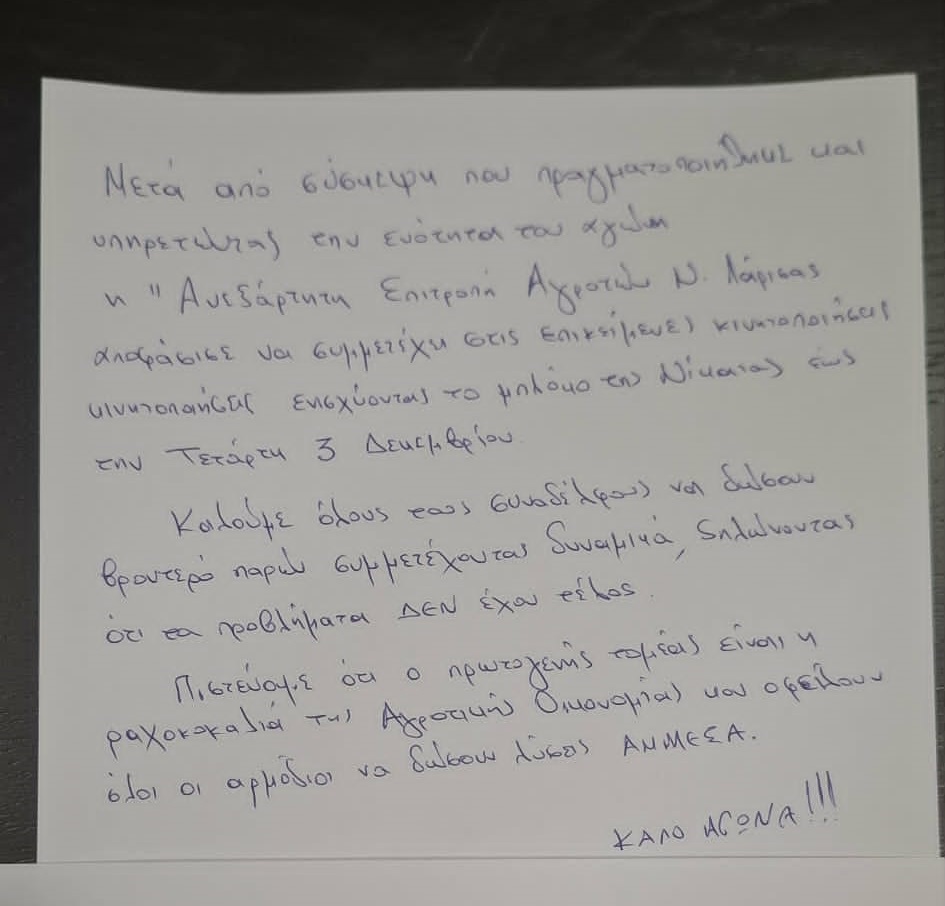 Μετά από σύσκεψη που πραγματοποιήθηκε και
υπηρετώντας την ενότητα του αγώνα
η "Ανεξάρτητη Επιτροπή Αγροτών Ν. Λάρισας
αποφάσισε να συμμετέχει στις επικείμενες κινητοποιήσεις
κινητοποιήσεις ενισχύοντας το μπλόκο της Νίκαιας έως
την Τετάρτη 3 Δεκεμβρίου.
Καλούμε όλους τους συναδέλφους να δώσουν
βροντερό παρών συμμετέχοντας δυναμικά, δηλώνοντας
ότι τα προβλήματα ΔΕΝ έχουν τέλος.
Πιστεύουμε ότι ο πρωτογενής τομέας είναι η
ραχοκοκαλιά της Αγροτικής Οικονομίας και οφείλουν
όλοι οι αρμόδιοι να δώσουν λύσεις ΑΜΜΕΣΑ.
ΚΑΛΟ ΑΓΩΝΑ!!!